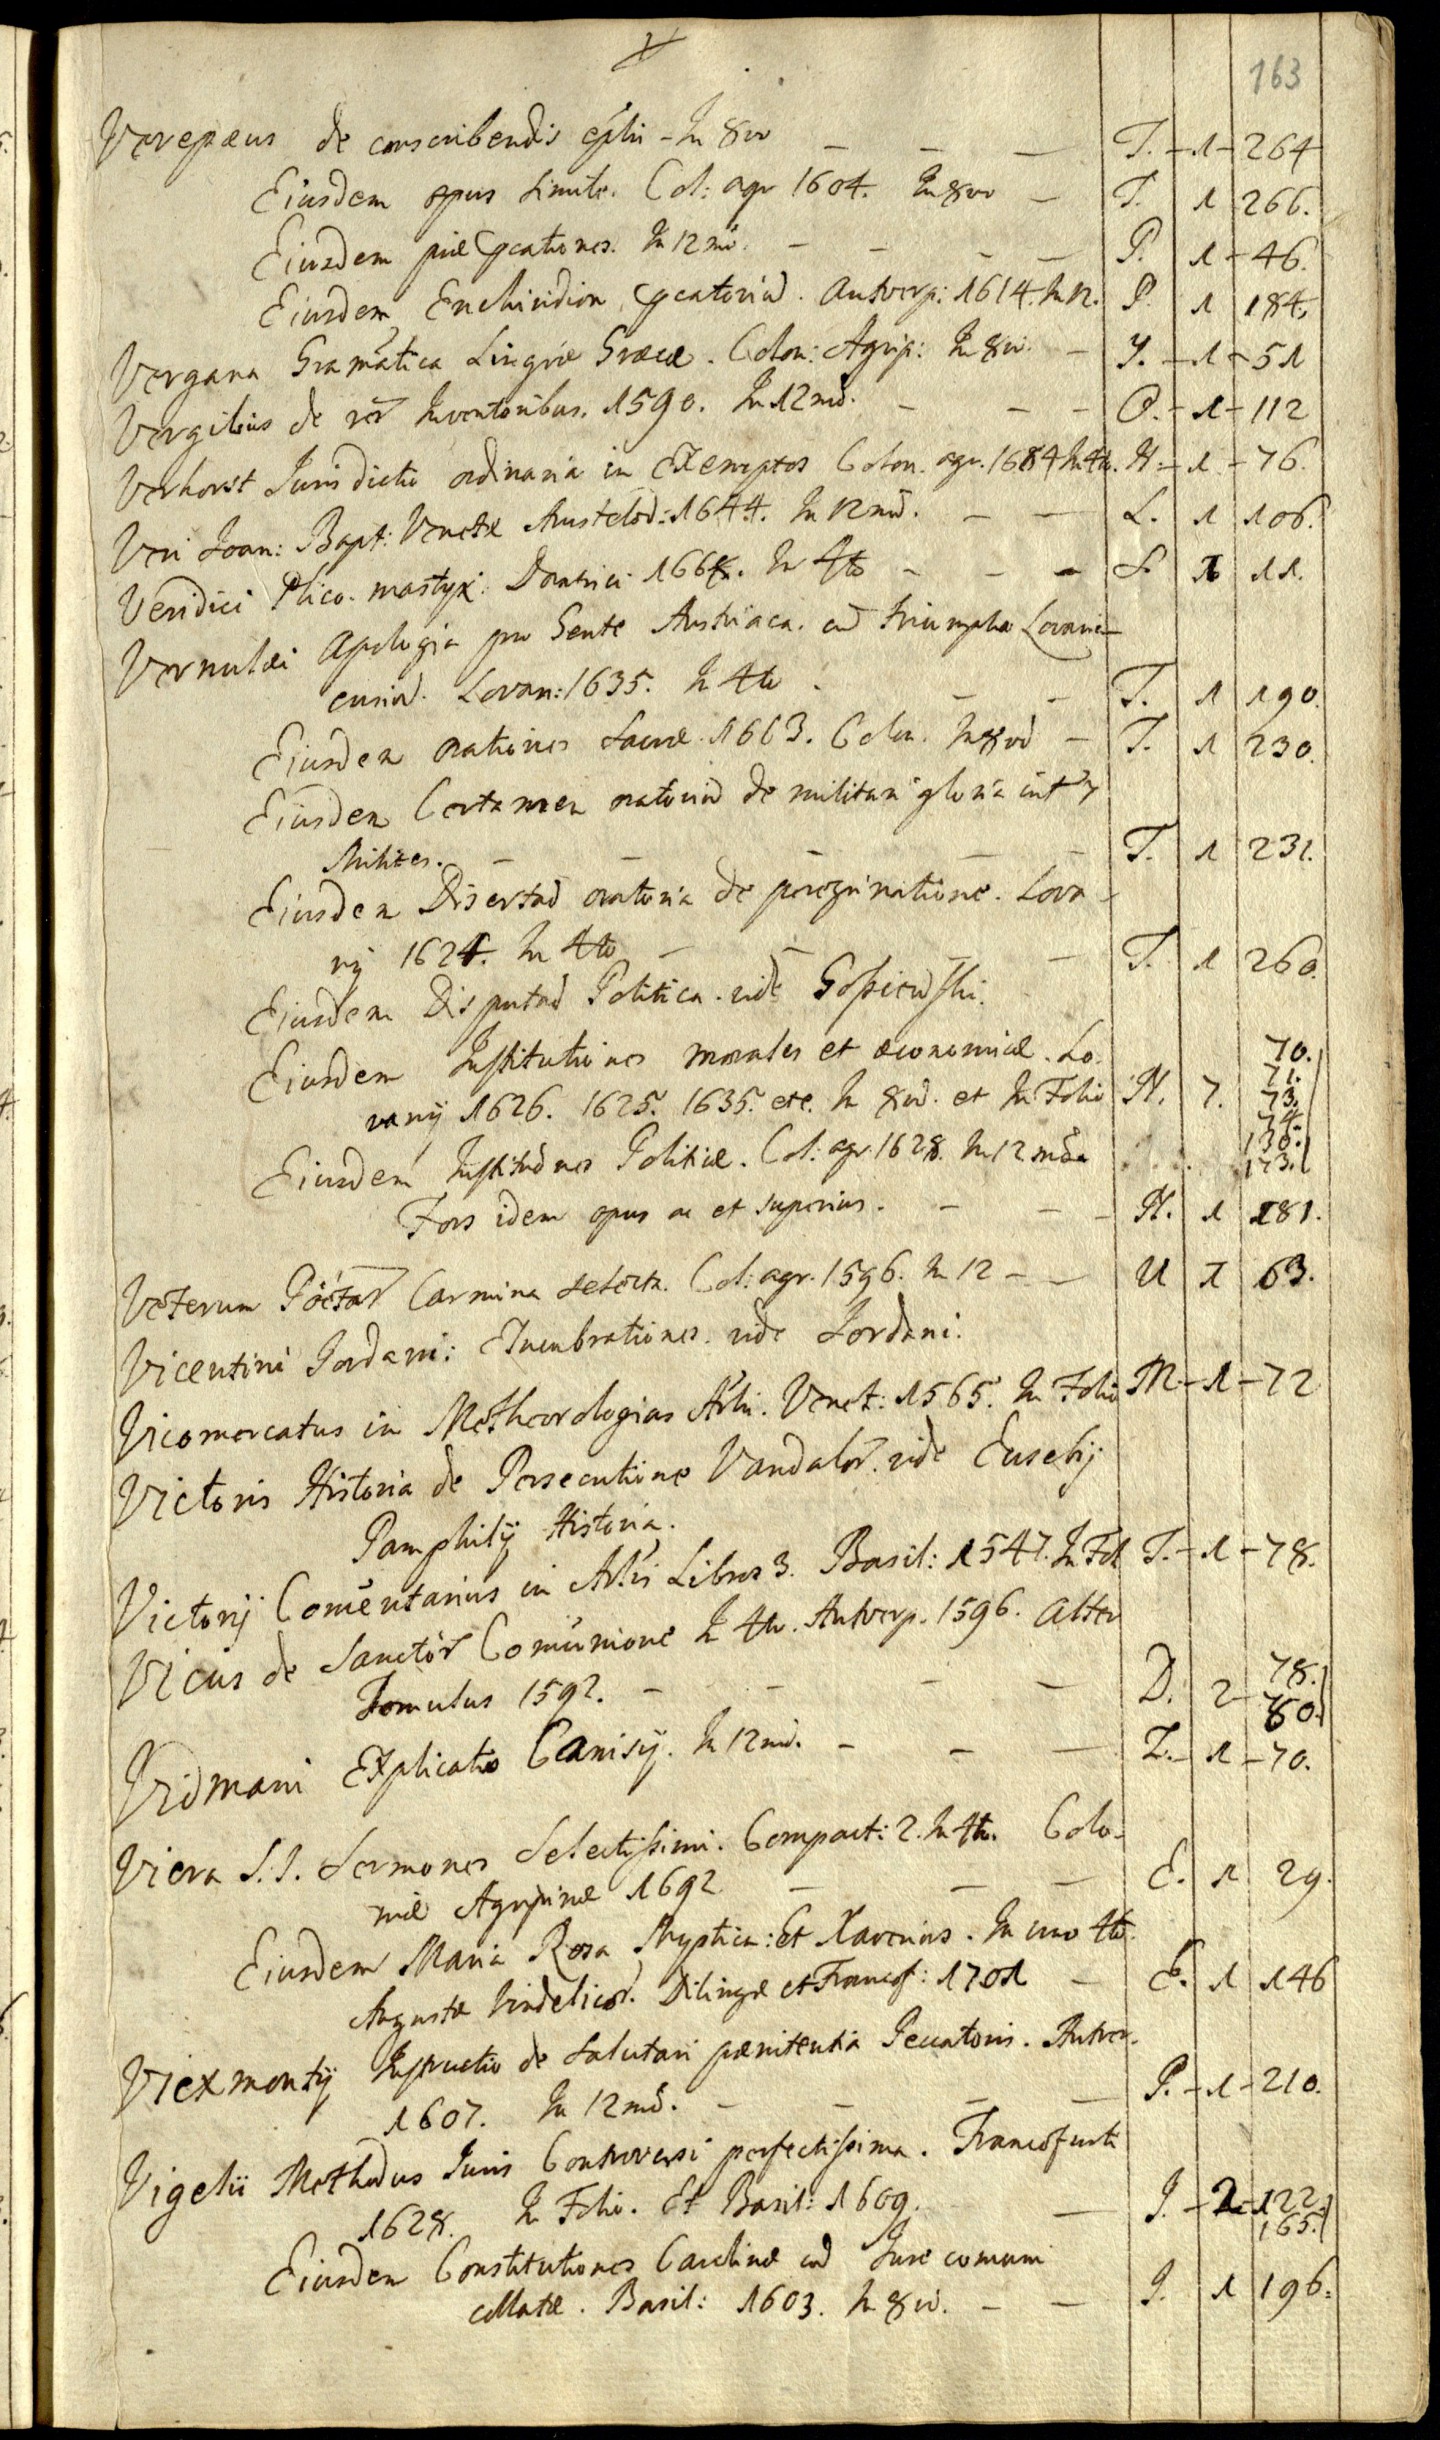 V
163
Verepæus de conscribendis eplis - In 8vo — — — T. - 1 - 264
Eiusdem opus simile. Col: agr 1604. In 8vo — T. 1 266.
Eiusdem piæ pcationes. In 12mo. — — — — P. 1 - 46.
Eiusdem Enchiridion pcatoriu. Antverp: 1614. In 12. P. 1 184.
Vergara Gramatica Linguæ Græcæ. Colon: Agrip: In 8vo. — Y. - 1 - 51
Vergilius de rer Inventoribus. 1590. In 12mo. — — — O. - 1 - 112
Verhorst Jurisdictio ordinaria in Exemptos Colon. agr. 1684 In 4to. H. - 1 - 76.
Veri Joan: Bapt: Venetæ Amstelod: 1644. In 12mo. — — L. 1 106.
Veridici Plico-mastyx. Dantisci 1668. In 4to — — — S. 1 11.
Vernulæi Apologia pro Gente Austriaca. cu triumpho Lovani-
ensiu. Lovan: 1635. In 4to. — — T. 1 190.
Eiusdem orationes Sacræ. 1663. Colon. In 8vo — T. 1 230.
Eiusdem Certamen oratoriu de militari gloria inter
Milites. — — — — — T. 1 231.
Eiusdem Disertao oratoria de peregrinatione. Lova-
nij 1624. In 4to — — — T. 1 260.
Eiusdem Disputao Politica. vide Gosiewski.
Eiusdem Institutiones morales et œconomicæ. Lo-
vanij 1626. 1625. 1635. etc. In 8vo. et In Folio H. 7. 70. 71. 73. 74. 130. 173.
Eiusdem Institudnes Politicæ. Col: agr. 1628. In 12mo
Fors idem opus ac et superius. — — — H. 1 181.
Veterum Poëtar Carmina selecta. Col: agr. 1596. In 12 — — U 1 63.
Vicentini Jordani: Elucubrationes. vide Jordani.
Vicomercatus in Metheorologias Arlis. Venet: 1565. In Folio M - 1 - 72
Victoris Historia de Persecutione Vandalor. vide Eusebij
Pamphilij Historia.
Victorij Comentarius in Arlis Libros 3. Basil: 1547. In Fol T. - 1 - 78.
Vicus de Sanctor Comunione In 4to. Antverp. 1596. alter
Tomulus 1592. — — — — D. 2 - 78. 80.
Vidmani Explicatio Canisij. In 12mo. — — — Z. - 1 - 70.
Viera S. J. Sermones Selectissimi. Compacti: 2. In 4to. Colo-
niæ Agrippinæ 1692 — — — E. 1 29.
Eiusdem Maria Rosa Mystica: Et Xaverius. In uno 4to.
Augustæ Vindelicor. Dilingæ et Francof: 1701 — E. 1 146
Viexmontij Instructio de salutari pænitentia Peccatoris. Antver.
1607. In 12mo. — — — — P. - 1 - 210.
Vigelii Methodus Juris Controversi perfectissima. Francofurti
1628. In Folio. Et Basil: 1609. — J. - 2 - 122. 165.
Eiusdem Constitutiones Carolinæ cu Jure comuni
collatæ. Basil: 1603. In 8vo. — — J. 1 196.